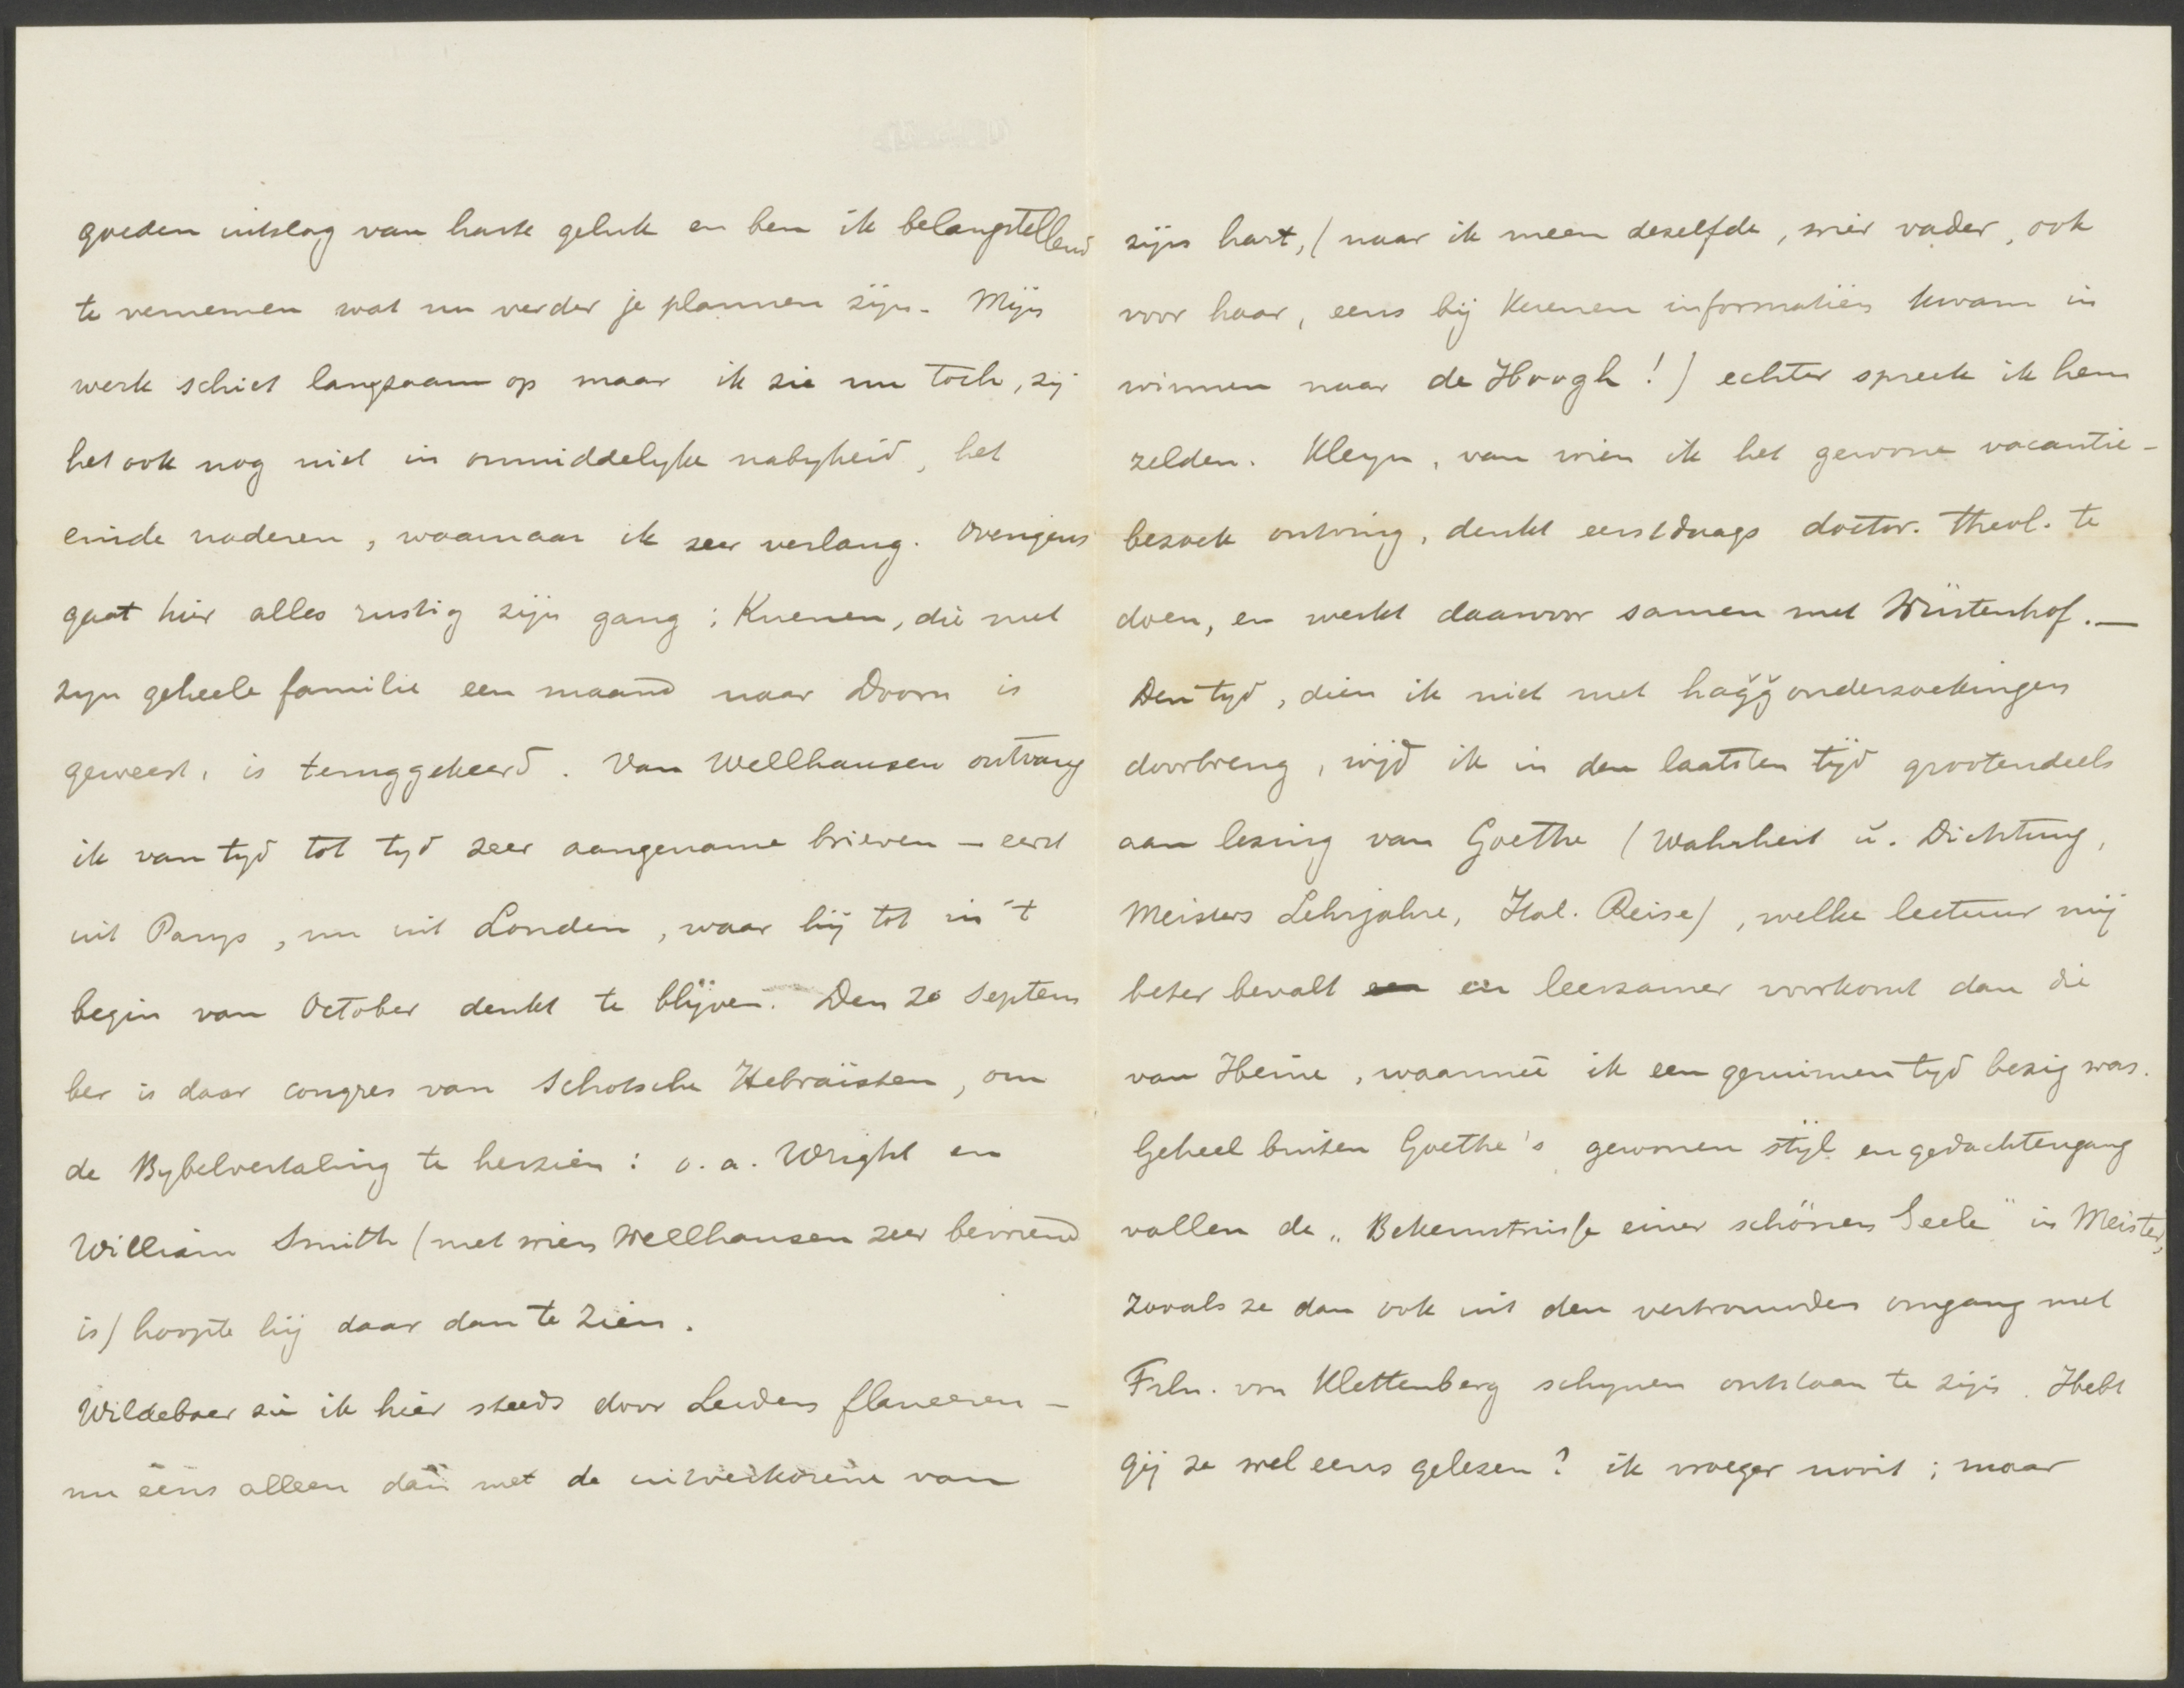 goeden uitslag van harte geluk en ben ik belangstellend
te vernemen wat nu verder je plannen zijn. Mijn
werk schiet langzaam op maar ik zie nu toch, zij
het ook nog niet in onmiddelyke nabyheid, het
einde naderen, waarnaar ik zeer verlang. Overigens
gaat hier alles rustig zijn gang: Kuenen, die met
zyn geheele familie een maand naar Doorn is
geweest, is teruggekeerd. Van Wellhausen ontvang
ik van tyd tot tyd zeer aangename brieven – eerst
uit Parys, nu uit Londen, waar hij tot in 't
begin van October denkt te blijven. Den 20 Septem
ber is daar congres van Schotsche Hebraïsten, om
de Bybelvertaling te herzien: o.a. Wright en
William Smith (met wien Wellhausen zeer bevriend
is) hoopte hij daar dan te zien.
Wildeboer zie ik hier steeds door Leiden flaneeren –
nu eens alleen dan met de uitverkorene van
zijn hart, (naar ik meen dezelfde, wier vader, ook
voor haar, eens bij Kuenen informatiën kwam in
winnen naar de Hoogh!) echter spreek ik hem
zelden. Kleyn, van wien ik het gewone vacantie-
bezoek ontving, denkt eerstdaags doctor. theol. te
doen, en werkt daarvoor samen met Wüstenhof. —
Den tyd, dien ik niet met haǧǧ onderzoekingen
doorbreng, wijd ik in den laatsten tijd grootendeels
aan lezing van Goethe (Wahrheit ŭ. Dichtung,
Meisters Lehrjahre, Ital. Reise), welke lectuur mij
beter bevalt en leerzamer voorkomt dan die
van Heine, waarmee ik een geruimen tyd bezig was.
Geheel buiten Goethe's gewonen stijl en gedachtengang
vallen de „Bekenntnisse einer schönen Seele" in Meister,
zooals ze dan ook uit den vertrouwden omgang met
Frln. von Klettenberg schynen ontstaan te zijn. Hebt
gij ze wel eens gelezen? ik vroeger nooit; maar